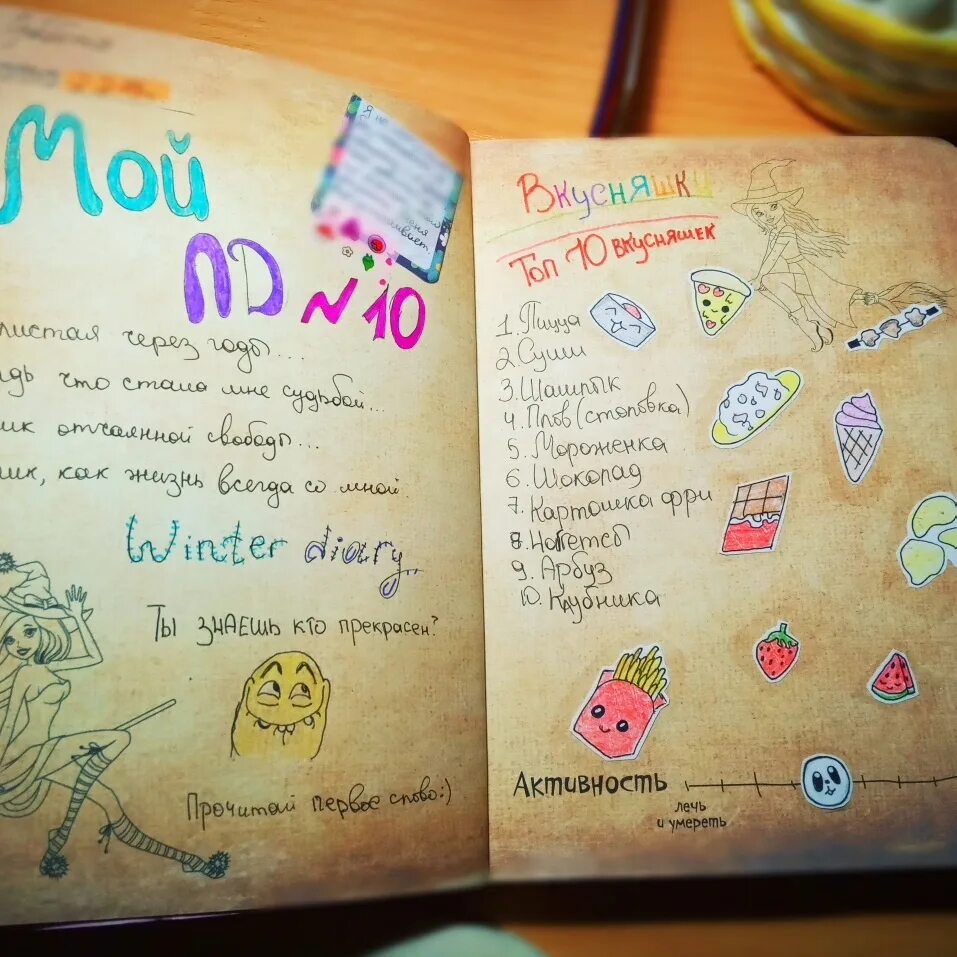 Мой
ПD
№10
листая через годы...
что стало мне судьбой...
отчаянной свободы...
как жизнь всегда со мной.
Winter diary...
Ты знаешь кто прекрасен?
Прочитай первое слово:)
Я не
Вкусняшки
Топ 10 вкусняшек
1. Пицца
2. Суши
3. Шашлык
4. Плов (столовка)
5. Мороженка
6. Шоколад
7. Картошка фри
8. Нагетсы
9. Арбуз
10. Клубника
Активность
лечь
и умереть